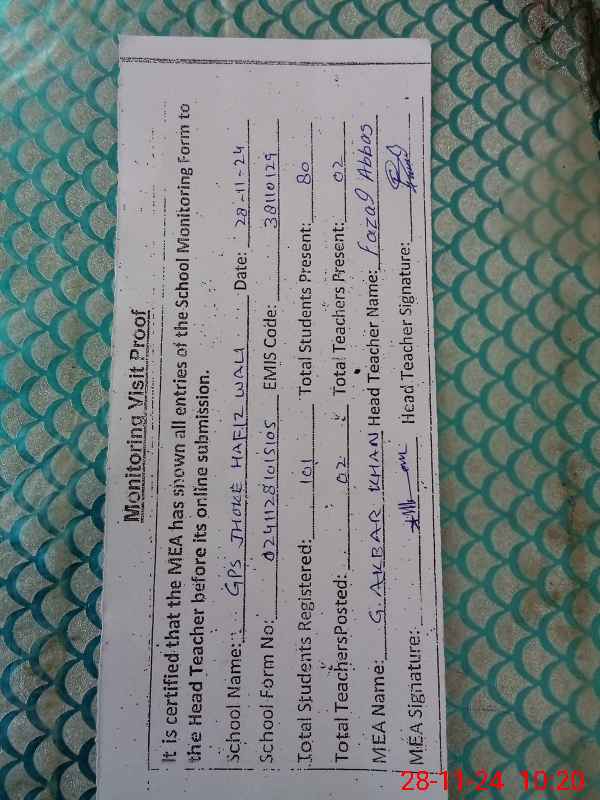 Monitoring Visit Proof
It is certified that the MEA has shown all entries of the School Monitoring Form to
the Head Teacher before its online submission.
School Name: GPS JHOKE HAFIZ WALI Date: 28-11-24
School Form No: 0241128101S105 EMIS Code: 38110129
Total Students Registered: 101 Total Students Present: 80
Total TeachersPosted: 02 Total Teachers Present: 02
MEA Name: G. AKBAR KHAN Head Teacher Name: Fazal Abbas
MEA Signature: Head Teacher Signature:
28-11-24 10:20